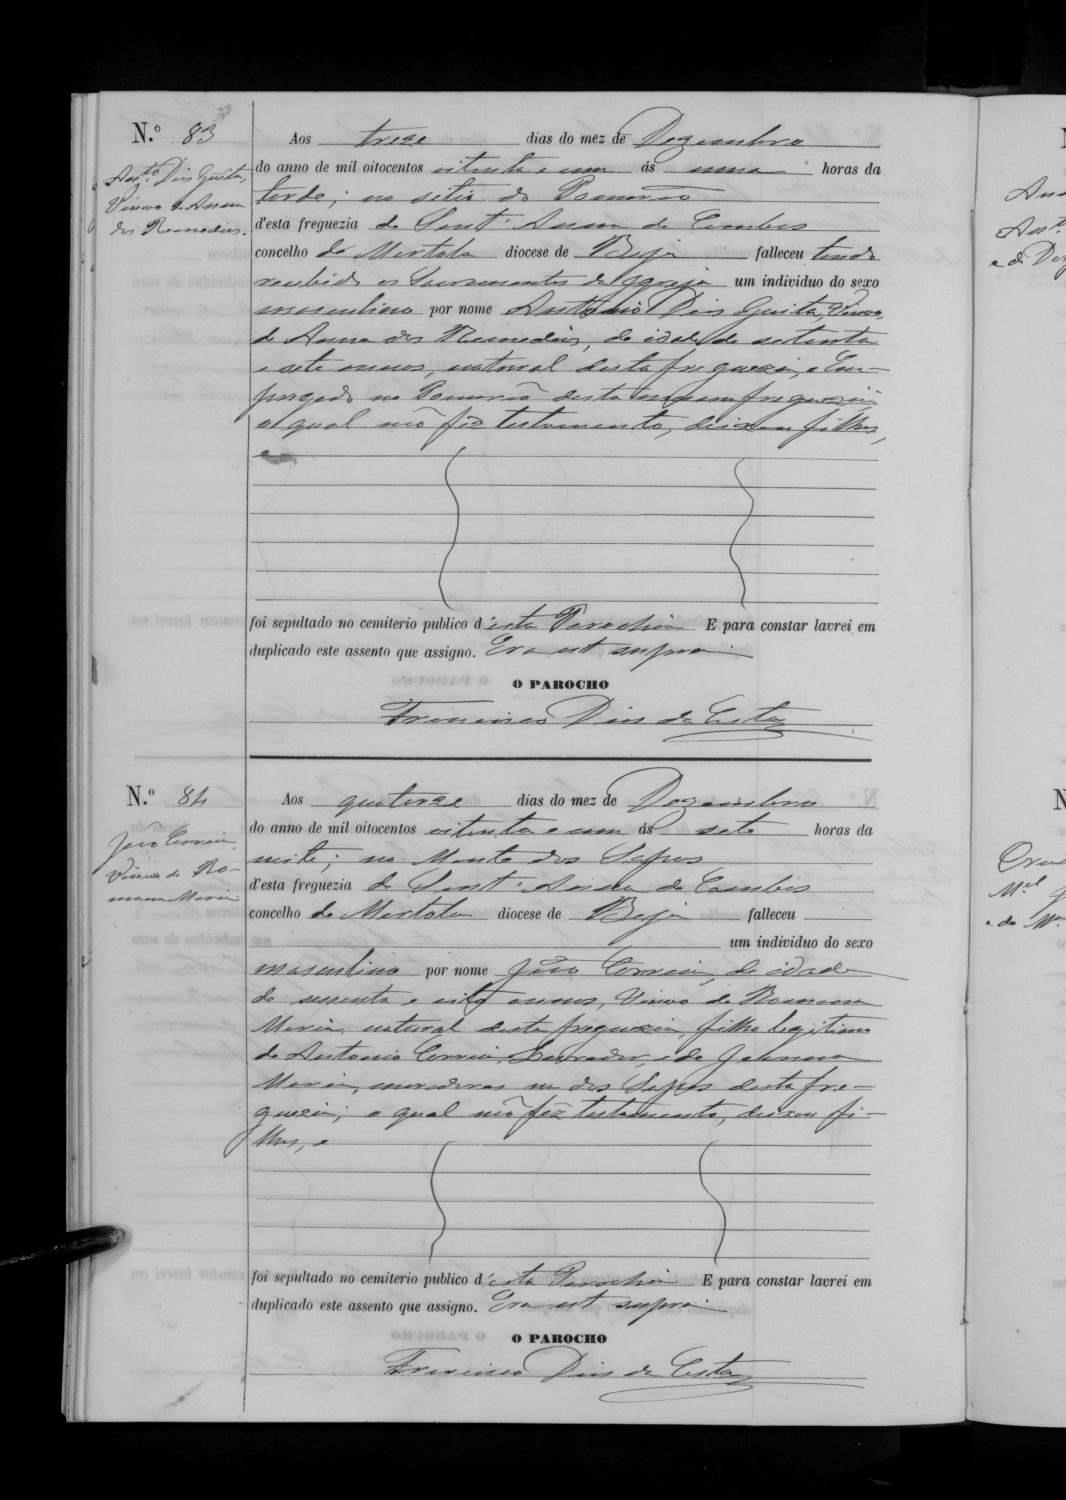 N.º 83
Ant.º Dis Guita,
Viuvo de Anna
dos Remedios.
Aos treze dias do mez de Dezembro
do anno de mil oitocentos oitenta e um ás uma horas da
tarde; no sitio do Pomarão
d'esta freguezia de Sant'Anna de Cambes
concelho de Mertola diocese de Beja falleceu tendo
recebido os Sacramentos da Igreja um individuo do sexo
masculino por nome Antonio Dis Guita, Viuvo
de Anna dos Remedios, de idade de setenta
e sete annos, natural desta freguezia, e Em-
pregado no Pomarão desta mesma freguezia
o qual não fez testamento, deixou filhos,
e
foi sepultado no cemiterio publico d'esta Parochia E para constar lavrei em
duplicado este assento que assigno. Era ut supra
O PAROCHO
Francisco Dis da Costa
N.º 84
João Correia,
Viuvo de Ro-
mana Maria
Aos quatorze dias do mez de Dezembro
do anno de mil oitocentos oitenta e um ás sete horas da
noite; no Monte dos Sapos
d'esta freguezia de Sant'Anna de Cambes
concelho de Mertola diocese de Beja falleceu
um individuo do sexo
masculino por nome João Correia, de idade
de sessenta e oito annos, Viuvo de Romana
Maria, natural desta freguezia, filho legitimo
de Antonio Correia, Lavrador, e de Joanna
Maria, moradores no dos Sapos desta fre-
guezia; o qual não fez testamento, deixou fi-
lhos, e
foi sepultado no cemiterio publico d'esta Parochia E para constar lavrei em
duplicado este assento que assigno. Era ut supra
O PAROCHO
Francisco Dis da Costa